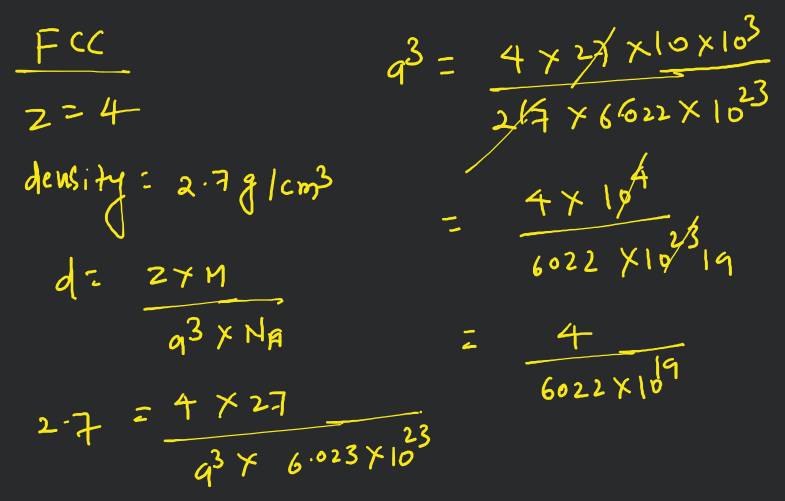 FCC
z = 4
density = 2.7 g/cm³
d = z × M / a³ × NA
2.7 = 4 × 27 / a³ × 6.023 × 10²³
a³ = 4 × 27 × 10 × 10³ / 27 × 6022 × 10²³
= 4 × 10⁴ / 6022 × 10²³ 19
= 4 / 6022 × 10¹⁹